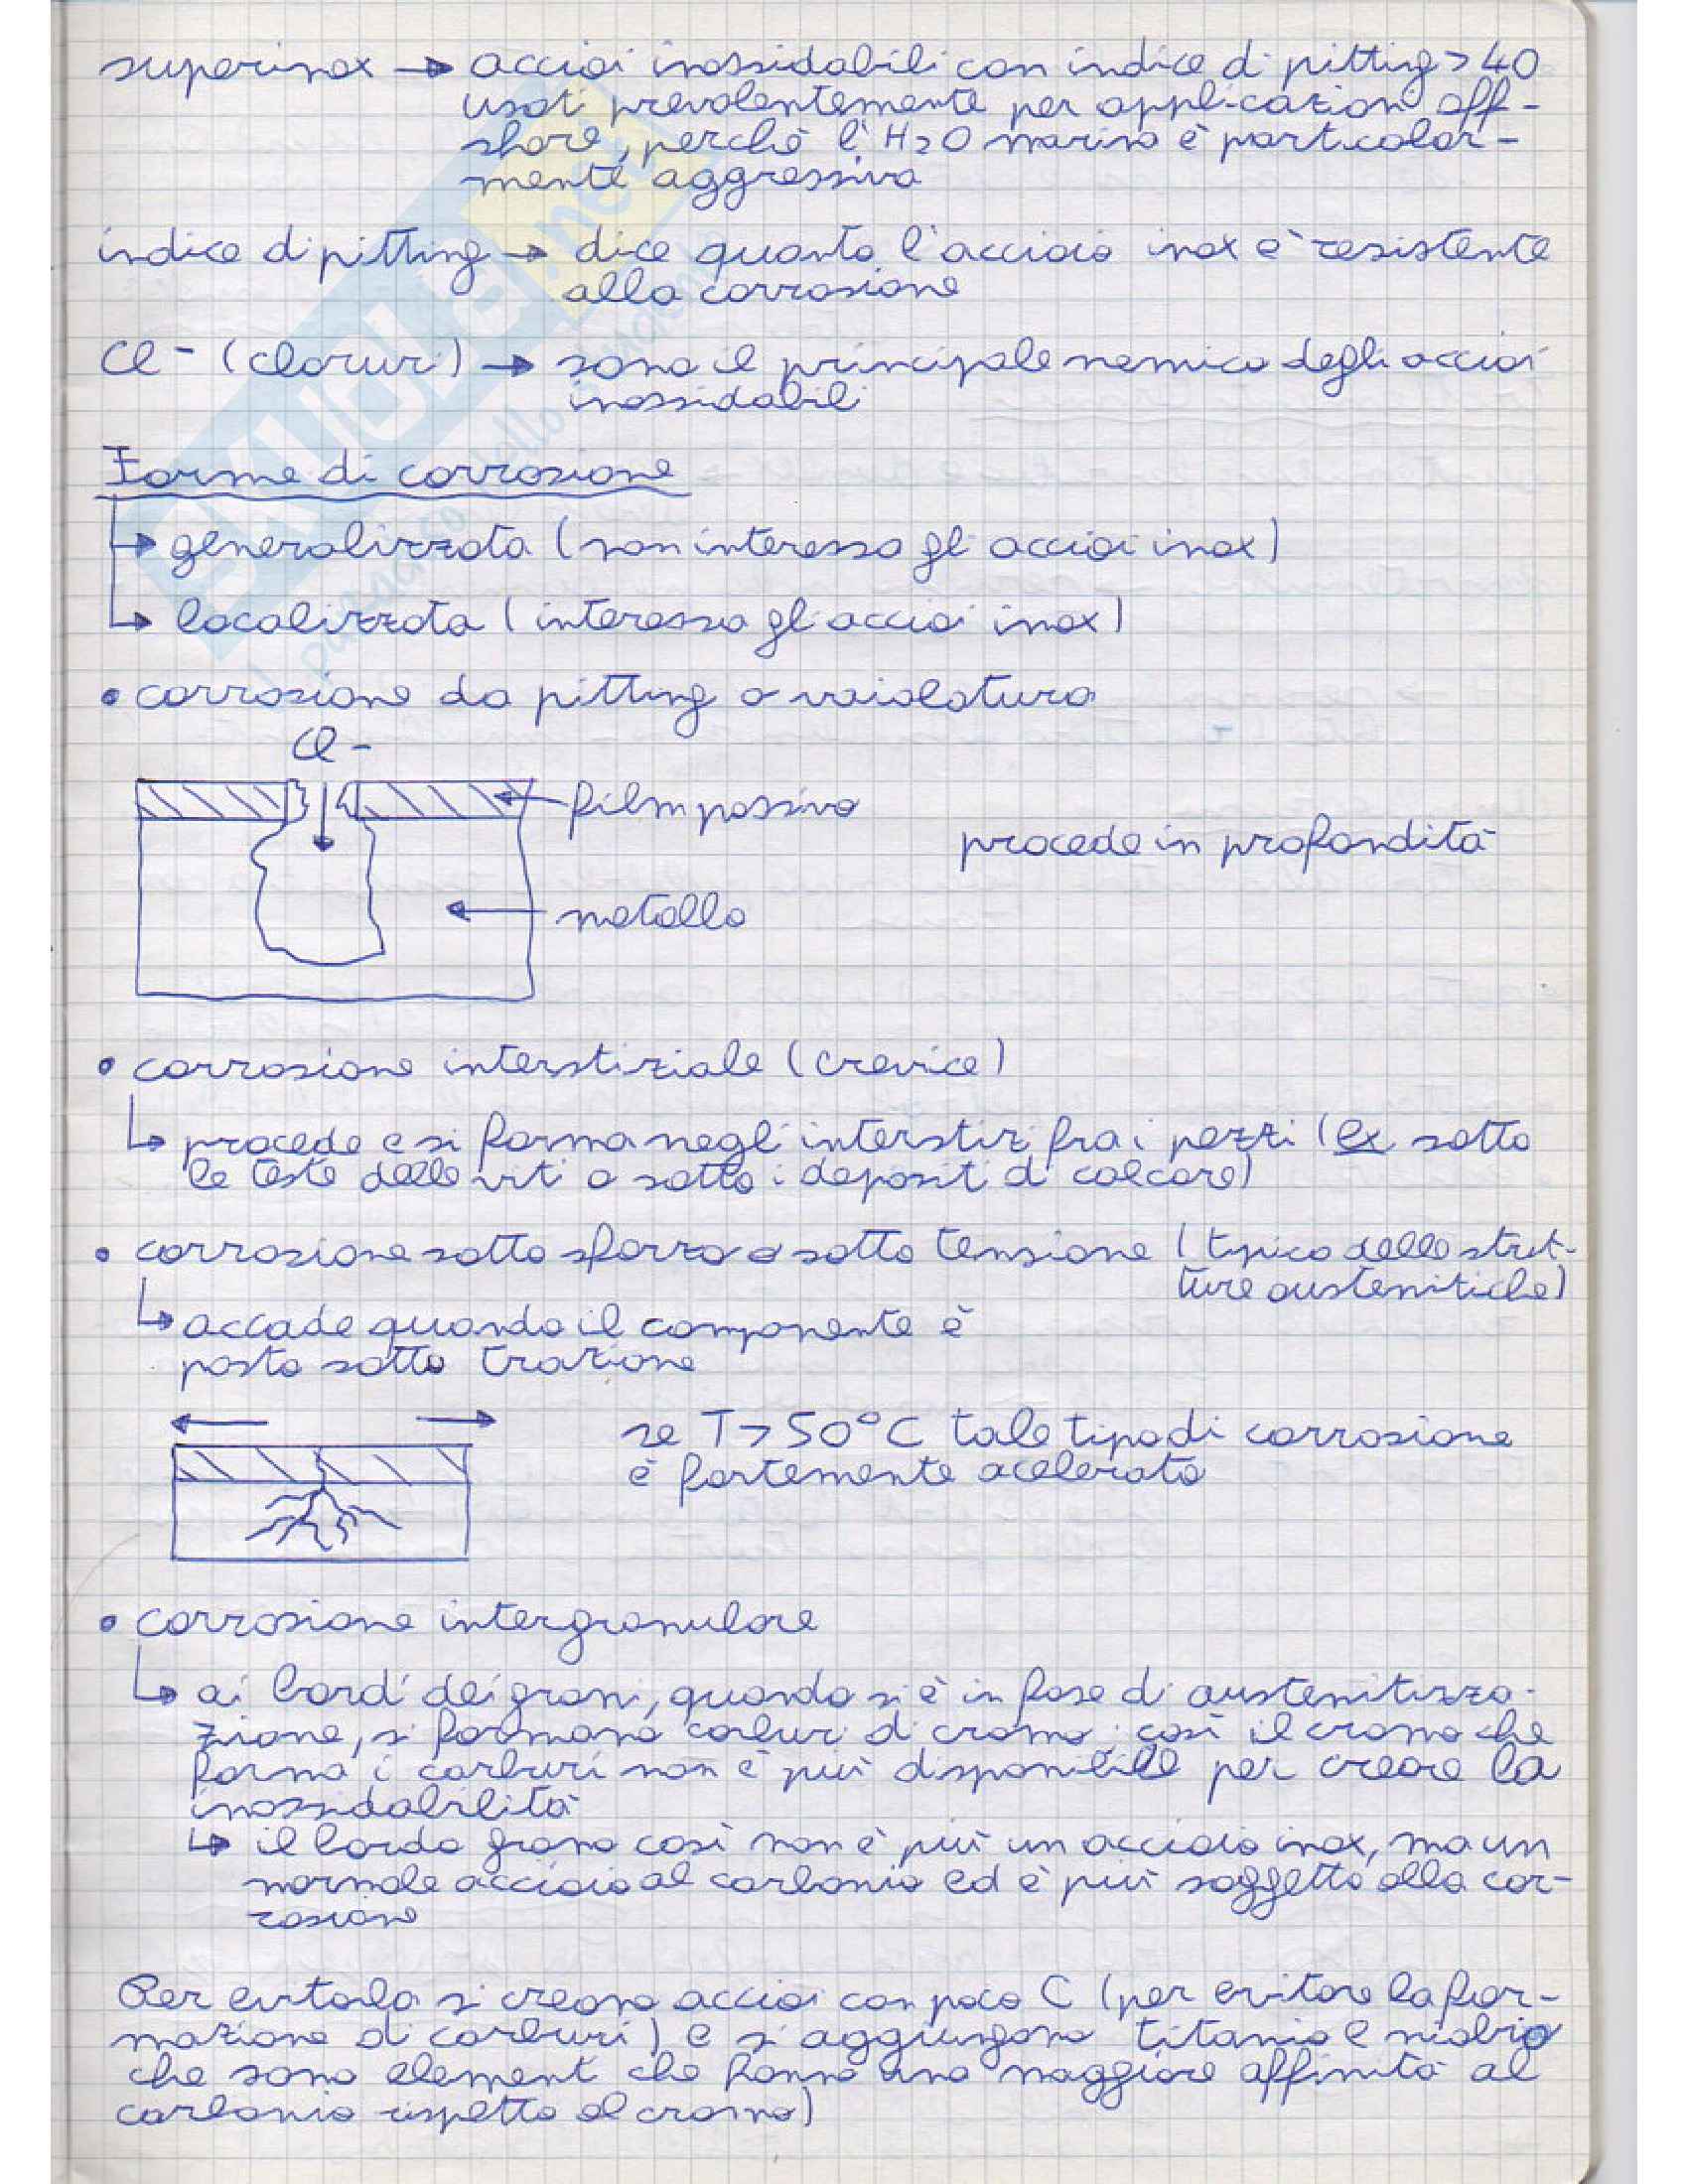 superinox → acciai inossidabili con indice di pitting > 40
usati prevalentemente per applicazioni off-
shore, perchè l'H2O marina è particolar-
mente aggressiva
indice di pitting → dice quanto l'acciaio inox è resistente
alla corrosione
Cl - (cloruri) → sono il principale nemico degli acciai
inossidabili
Forme di corrosione
↳ generalizzata (non interessa gli acciai inox)
↳ localizzata (interessa gli acciai inox)
• corrosione da pitting o vaiolatura
Cl -
film passivo
procede in profondità
metallo
• corrosione interstiziale (crevice)
↳ procede e si forma negli interstizi fra i pezzi (ex sotto
le teste delle viti o sotto i depositi di calcare)
• corrosione sotto sforzo o sotto tensione (tipico delle strut-
ture austenitiche)
↳ accade quando il componente è
posto sotto trazione
se T > 50°C tale tipo di corrosione
è fortemente acelerata
• corrosione intergranulare
↳ ai bordi dei grani, quando si è in fase di austenitizza-
zione, si formano carburi di cromo; così il cromo che
forma i carburi non è più disponibile per creare la
inossidabilità
↳ il bordo grano così non è più un acciaio inox, ma un
normale acciaio al carbonio ed è più soggetto alla cor-
rosione
Per evitarla si creano acciai con poco C (per evitare la for-
mazione di carburi) e si aggiungono titanio e niobio
che sono elementi che hanno una maggiore affinità al
carbonio rispetto al cromo)
SKUOLA.net